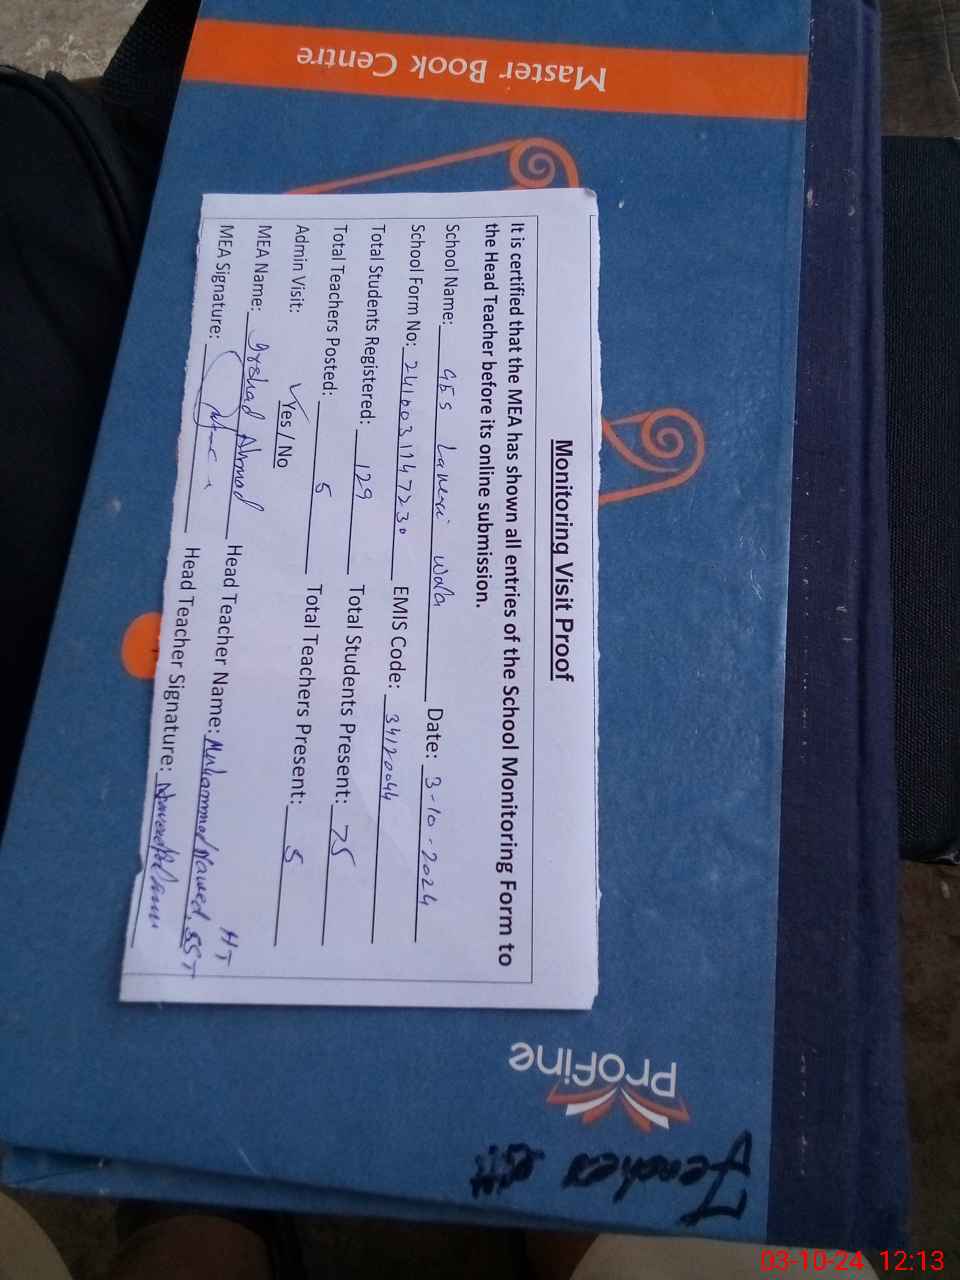 Master Book Centre
Monitoring Visit Proof
It is certified that the MEA has shown all entries of the School Monitoring Form to
the Head Teacher before its online submission.
School Name: GES Laneri Wala Date: 3-10-2024
School Form No: 2410031147230 EMIS Code: 34120044
Total Students Registered: 129 Total Students Present: 75
Total Teachers Posted: 5 Total Teachers Present: 5
Admin Visit: Yes / No
MEA Name: Irshad Ahmad Head Teacher Name: Muhammad Naveed, SST HT
MEA Signature: Head Teacher Signature:
ProFine
Teacher
03-10-24 12:13